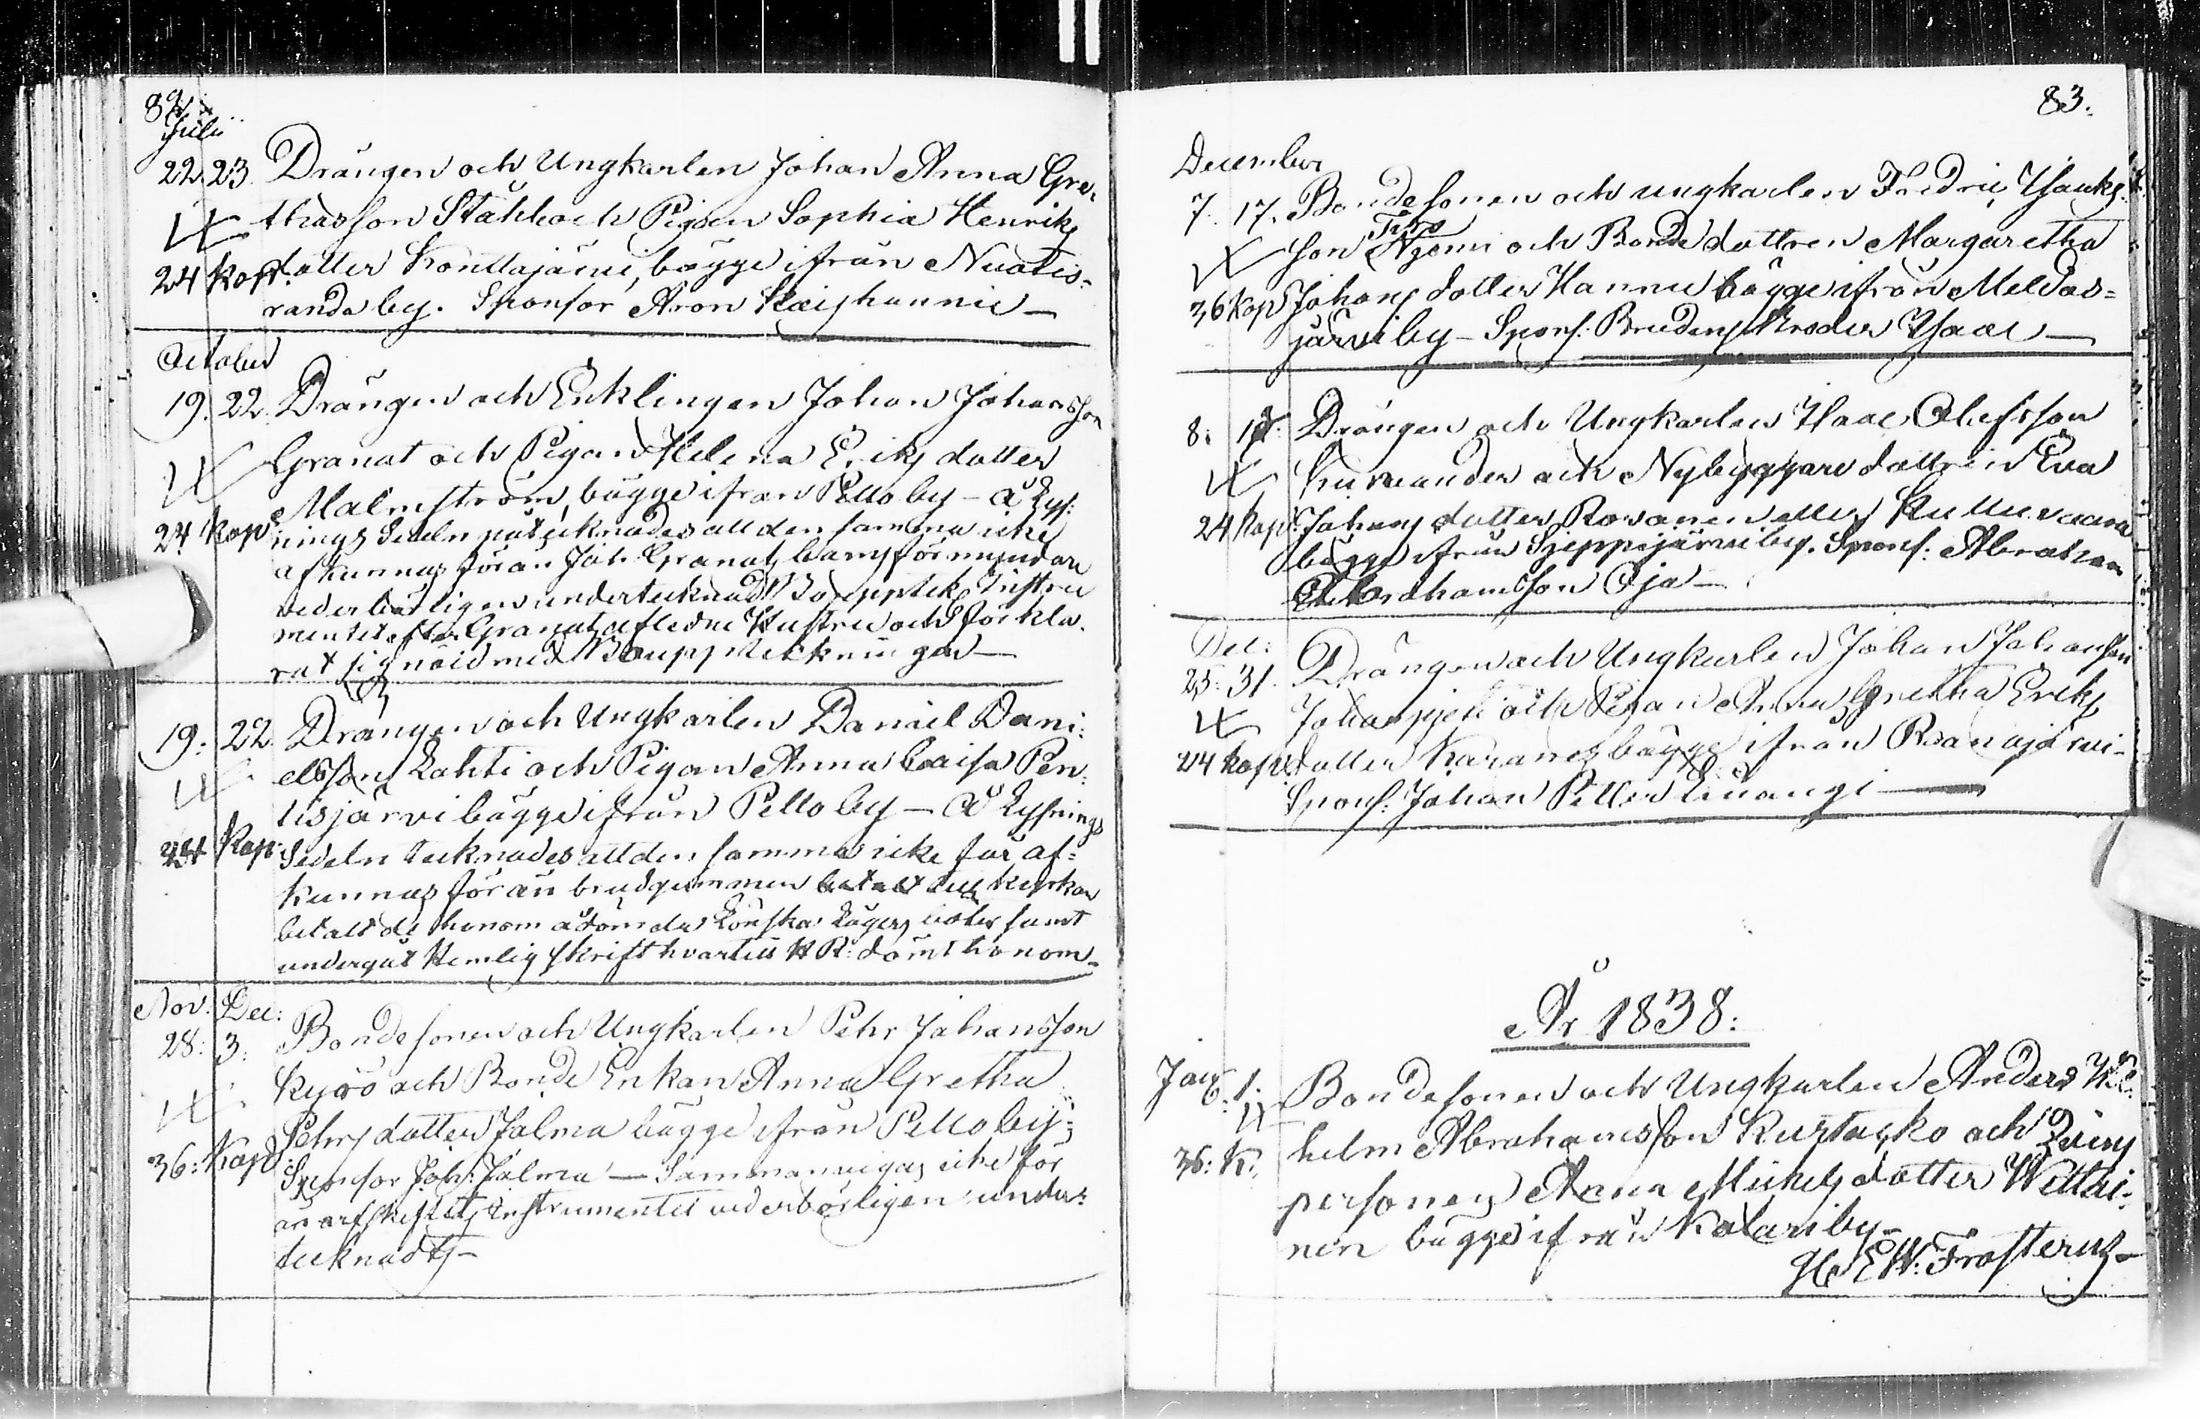 82.
Julii
22. 23. Drängen och Ungkarlen Johan Anna Gre-
thasson Ståhl och Pigan Sophia Henriks
24 Kop. dotter Konttajärvi, bägge ifrån Nuotio-
randa by. Sponsor Aron
October
19. 22. Drängen och Enklingen Johan Johansson
Granat och Pigan Helena Eriks dotter
Malmström, bägge ifrån Pello by – Å Lys-
24 Kop. nings Sedeln påtecknades att den samma icke
afkunnas förän Joh. Granats barns förmyndare
vederbörligen undertecknadt Bouppteckn. Instru
mentet efter Granats aflidne Hustru och förkla-
rat sig nöid med Bouppteckningen –
19: 22. Drängen och Ungkarlen Daniel Dani-
elsson Lahti och Pigan Anna Caisa Pen-
tisjärvi bägge ifrån Pello by – Å Lysnings
24 Kop. Sedeln tecknades att den samma icke får af-
kunnas förän brudgummen till kyrkan
betalt de honom ådömda Lönska Lägers böter samt
undergåt Hemlig skrift hvartill H R: dömt honom –
Nov: Dec:
28: 3: Bondesonen och Ungkarlen Pehr Johansson
Kyrö och Bonde Enkan Anna Gretha
Pehrs dotter Jolma bägge ifrån Pello by;
36: Kop Sponsor Joh: Jolma – Sammanvigas icke för
än arfskiftets Instrumentet vederbörligen under-
tecknadts –
83.
December
7. 17. Bondesonen och ungkarlen Fredric Isaks
son och Bonde dottren Margaretha
36 Kop Johans dotter Hannu bägge ifrån Meldos-
järvi by – Spons: Brudens Broder Isaac –
8. 17. Drängen och Ungkarlen Isaac Olofsson
och Nybyggare dottren Eva
24 Kop: Johans dotter Rovanen eller
bägge ifrån Sieppijärvi by. Spons: Abraham
Abrahamsson Oja –
Dec:
25. 31. Drängen och Ungkarlen Johan Johansson
och Pigan Anna Gretha Eriks
24 Kop. dotter bägge ifrån Roanajärvi –
Spons: Johan Petter –
År 1838:
Jan. 1. Bondesonen och Ungkarlen Anders Wil-
helm Abrahamsson Kurtacko och Qvins
36: K: personen Anna Mickels dotter Wettai-
nen bägge ifrån Kolari by –
H. E W: Frosterus –